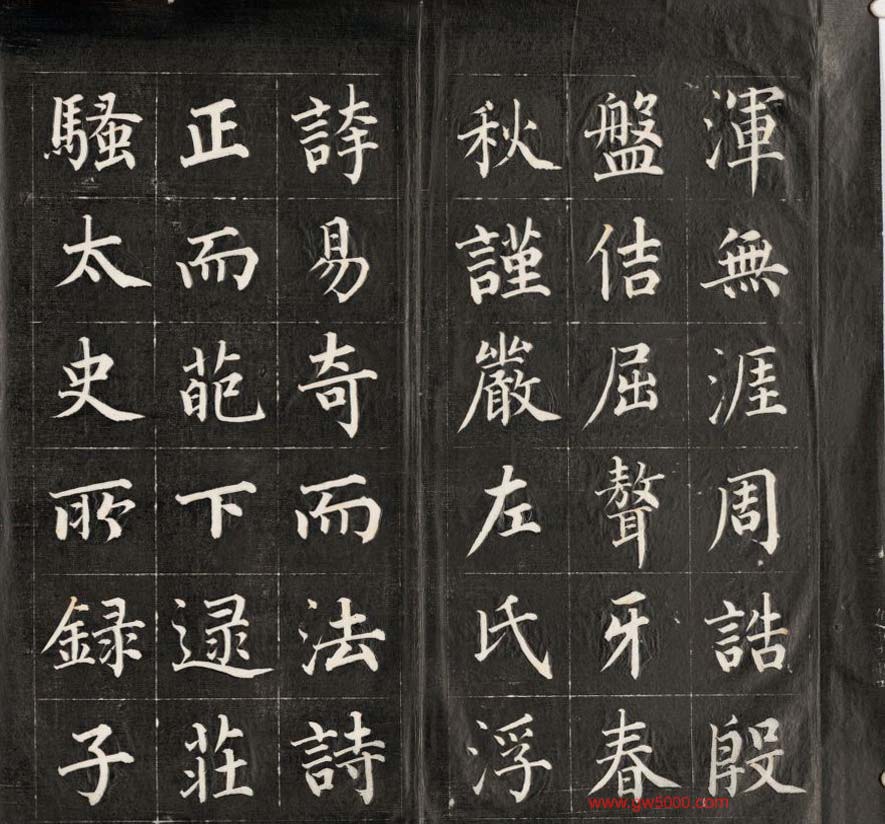 渾無涯周誥殷
盤佶屈聱牙春
秋謹嚴左氏浮
誇易奇而法詩
正而葩下逯莊
騷太史所録子
www.gw5000.com